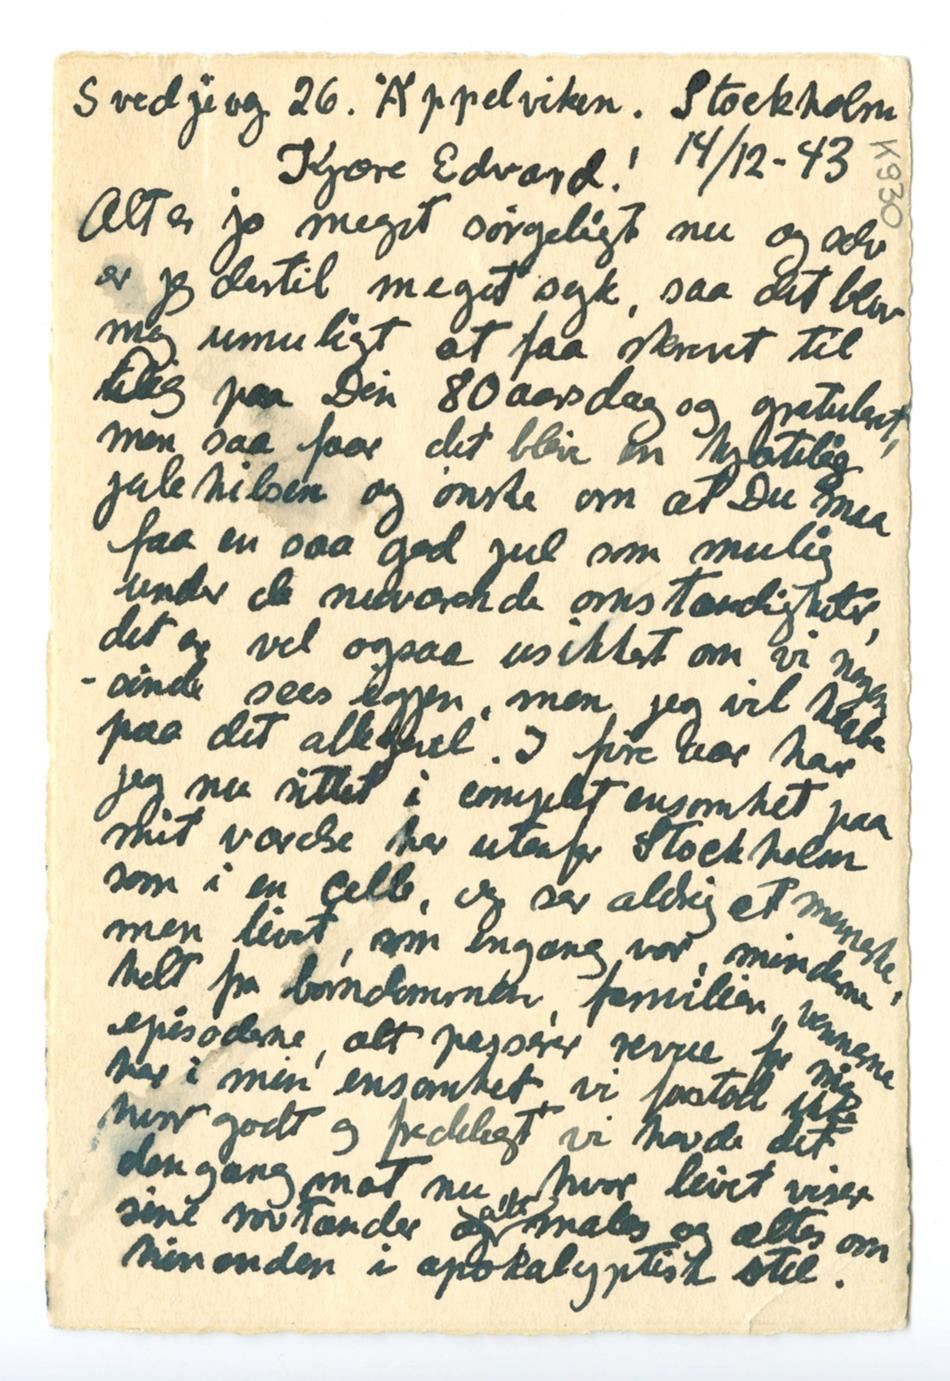 Svedjevg 26. Äppelviken. Stockholm
Kjære Edvard! 14/12-43
K930
Alt er jo meget sørgeligt nu og selv
er jeg dertil meget syk, saa det blev
mig umuligt at faa skrevet til
Dig paa Din 80 aarsdag og gratulert,
men saa faar det blive en hjertelig
julehilsen og ønske om at Du maa
faa en saa god jul som mulig
under de nuværende omstændigheter,
det er vel ogsaa usikkert om vi nogen
-sinde sees igjen, men jeg vil haabe
paa det allikevel. I fire aar har
jeg nu sittet i complet ensomhet paa
mit værelse her utenfor Stockholm
som i en celle, og ser aldrig et menneske,
men livet, som engang var, minderne
helt fra barndommen, familien, vennerne
episoderne, alt passerer revue for mig
her i min ensomhet, vi forstod ikke
hvor godt og fredeligt vi havde det
dengang mot nu, hvor livet viser
sine rovtænder males og ættes om
hinanden i apokalyptisk stil.